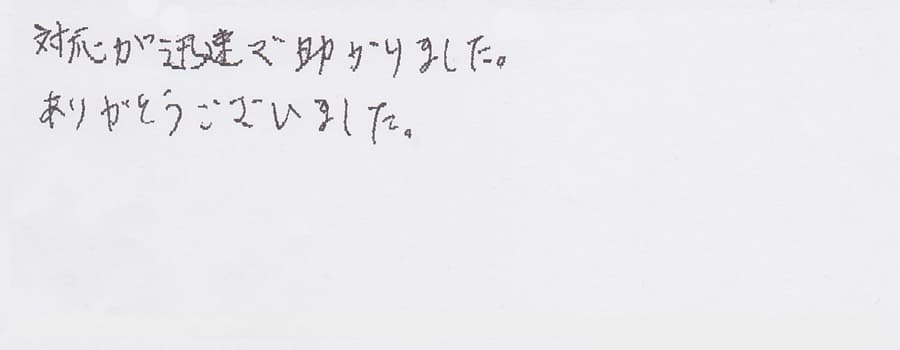 対応が迅速で助かりました。
ありがとうございました。